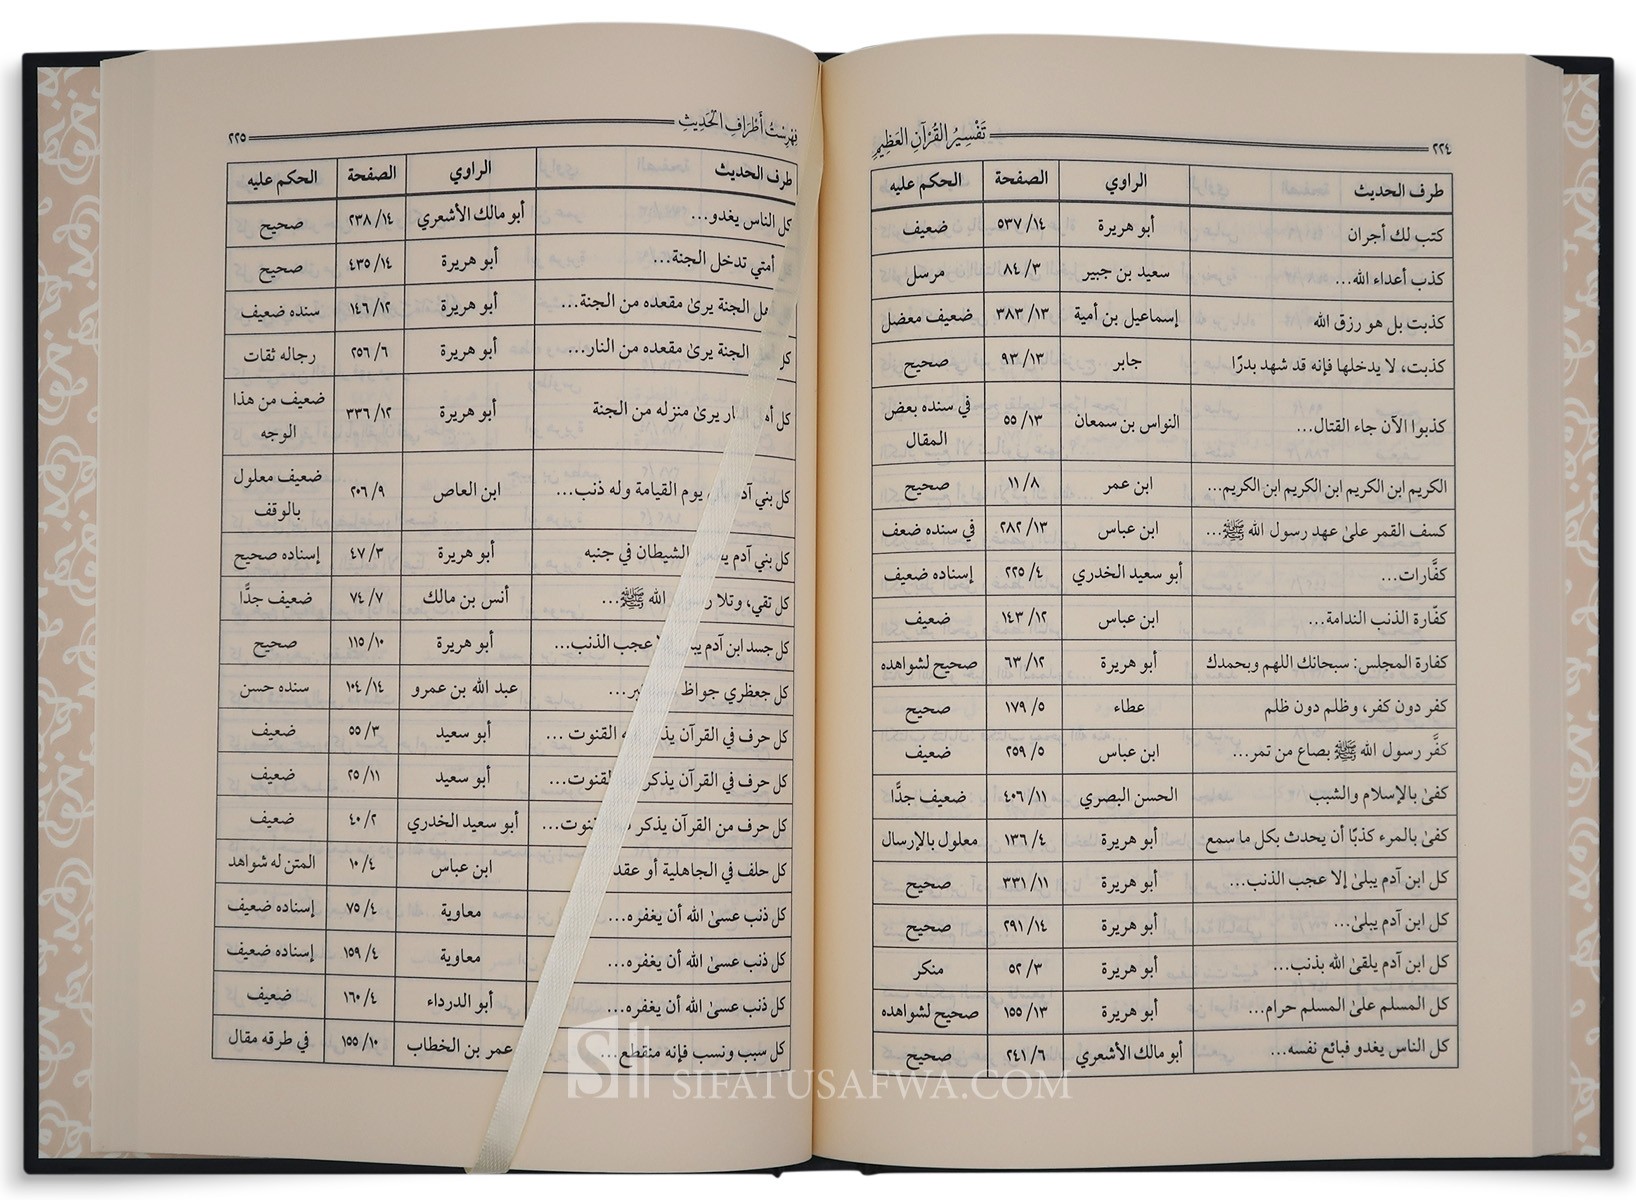 ٢٢٤ تَفْسِيرُ القُرْآنِ العَظِيمِ
طرف الحديث الراوي الصفحة الحكم عليه
كتب لك أجران أبو هريرة ١٤/ ٥٣٧ ضعيف
كذب أعداء الله... سعيد بن جبير ٣/ ٨٤ مرسل
كذبت بل هو رزق الله إسماعيل بن أمية ١٣/ ٣٨٣ ضعيف معضل
كذبت، لا يدخلها فإنه قد شهد بدرًا جابر ١٣/ ٩٣ صحيح
كذبوا الآن جاء القتال... النواس بن سمعان ١٣/ ٥٥ في سنده بعض
المقال
الكريم ابن الكريم ابن الكريم ابن الكريم... ابن عمر ٨/ ١١ صحيح
كسف القمر علىٰ عهد رسول الله ﷺ... ابن عباس ١٣/ ٢٨٢ في سنده ضعف
كفَّارات... أبو سعيد الخدري ٤/ ٢٢٥ إسناده ضعيف
كفّارة الذنب الندامة... ابن عباس ١٢/ ١٤٣ ضعيف
كفارة المجلس: سبحانك اللهم وبحمدك أبو هريرة ١٢/ ٦٣ صحيح لشواهده
كفر دون كفر، وظلم دون ظلم عطاء ٥/ ١٧٩ صحيح
كفَّر رسول الله ﷺ بصاع من تمر... ابن عباس ٥/ ٢٥٩ ضعيف
كفىٰ بالإسلام والشيب الحسن البصري ١١/ ٤٠٦ ضعيف جدًّا
كفىٰ بالمرء كذبًا أن يحدث بكل ما سمع أبو هريرة ٤/ ١٣٦ معلول بالإرسال
كل ابن آدم يبلىٰ إلا عجب الذنب... أبو هريرة ١١/ ٣٣١ صحيح
كل ابن آدم يبلىٰ... أبو هريرة ١٤/ ٢٩١ صحيح
كل ابن آدم يلقىٰ الله بذنب... أبو هريرة ٣/ ٥٢ منكر
كل المسلم علىٰ المسلم حرام... أبو هريرة ١٣/ ١٥٥ صحيح لشواهده
كل الناس يغدو فبائع نفسه... أبو مالك الأشعري ٦/ ٢٤١ صحيح
فِهْرِسْتُ أَطْرَافِ الْحَدِيثِ ٢٢٥
طرف الحديث الراوي الصفحة الحكم عليه
كل الناس يغدو... أبو مالك الأشعري ١٤/ ٢٣٨ صحيح
أمتي تدخل الجنة... أبو هريرة ١٤/ ٤٣٥ صحيح
الجنة يرىٰ مقعده من الجنة... أبو هريرة ١٢/ ١٤٦ سنده ضعيف
كل الجنة يرىٰ مقعده من النار... أبو هريرة ٦/ ٢٥٦ رجاله ثقات
كل يرىٰ منزله من الجنة أبو هريرة ١٢/ ٣٣٦ ضعيف من هذا
الوجه
كل بني يوم القيامة وله ذنب... ابن العاص ٩/ ٢٠٦ ضعيف معلول
بالوقف
كل بني آدم الشيطان في جنبه أبو هريرة ٣/ ٤٧ إسناده صحيح
كل تقي، وتلا الله ﷺ... أنس بن مالك ٧/ ٧٤ ضعيف جدًّا
كل جسد ابن آدم عجب الذنب... أبو هريرة ١٠/ ١١٥ صحيح
كل جعظري جواظ عبد الله بن عمرو ١٤/ ١٠٤ سنده حسن
كل حرف في القرآن القنوت ... أبو سعيد ٣/ ٥٥ ضعيف
كل حرف في القرآن يذكر القنوت... أبو سعيد ١١/ ٢٥ ضعيف
كل حرف من القرآن يذكر أبو سعيد الخدري ٢/ ٤٠ ضعيف
كل حلف في الجاهلية أو عقد ابن عباس ٤/ ١٠ المتن له شواهد
كل ذنب عسىٰ الله أن يغفره... معاوية ٤/ ٧٥ إسناده ضعيف
كل ذنب عسىٰ الله أن يغفره... معاوية ٤/ ١٥٩ إسناده ضعيف
كل ذنب عسىٰ الله أن يغفره... أبو الدرداء ٤/ ١٦٠ ضعيف
كل سبب ونسب فإنه منقطع... عمر بن الخطاب ١٠/ ١٥٥ في طرقه مقال
SIFATUSAFWA.COM